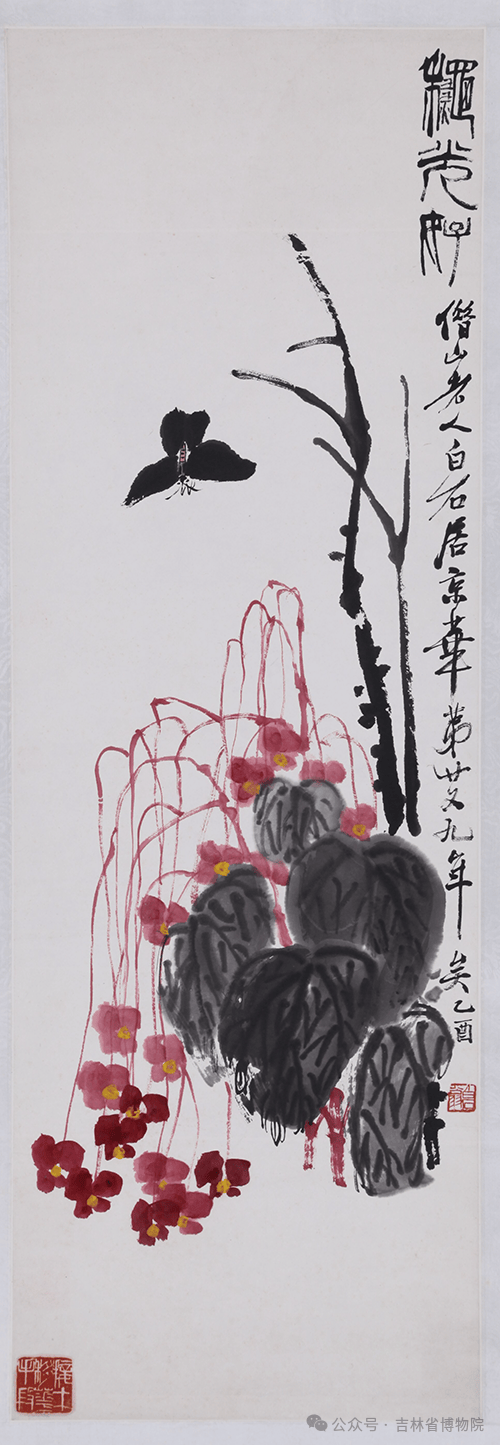 龝光好
借山老人白石居京華第廿又九年矣乙酉
公众号 · 吉林省博物院